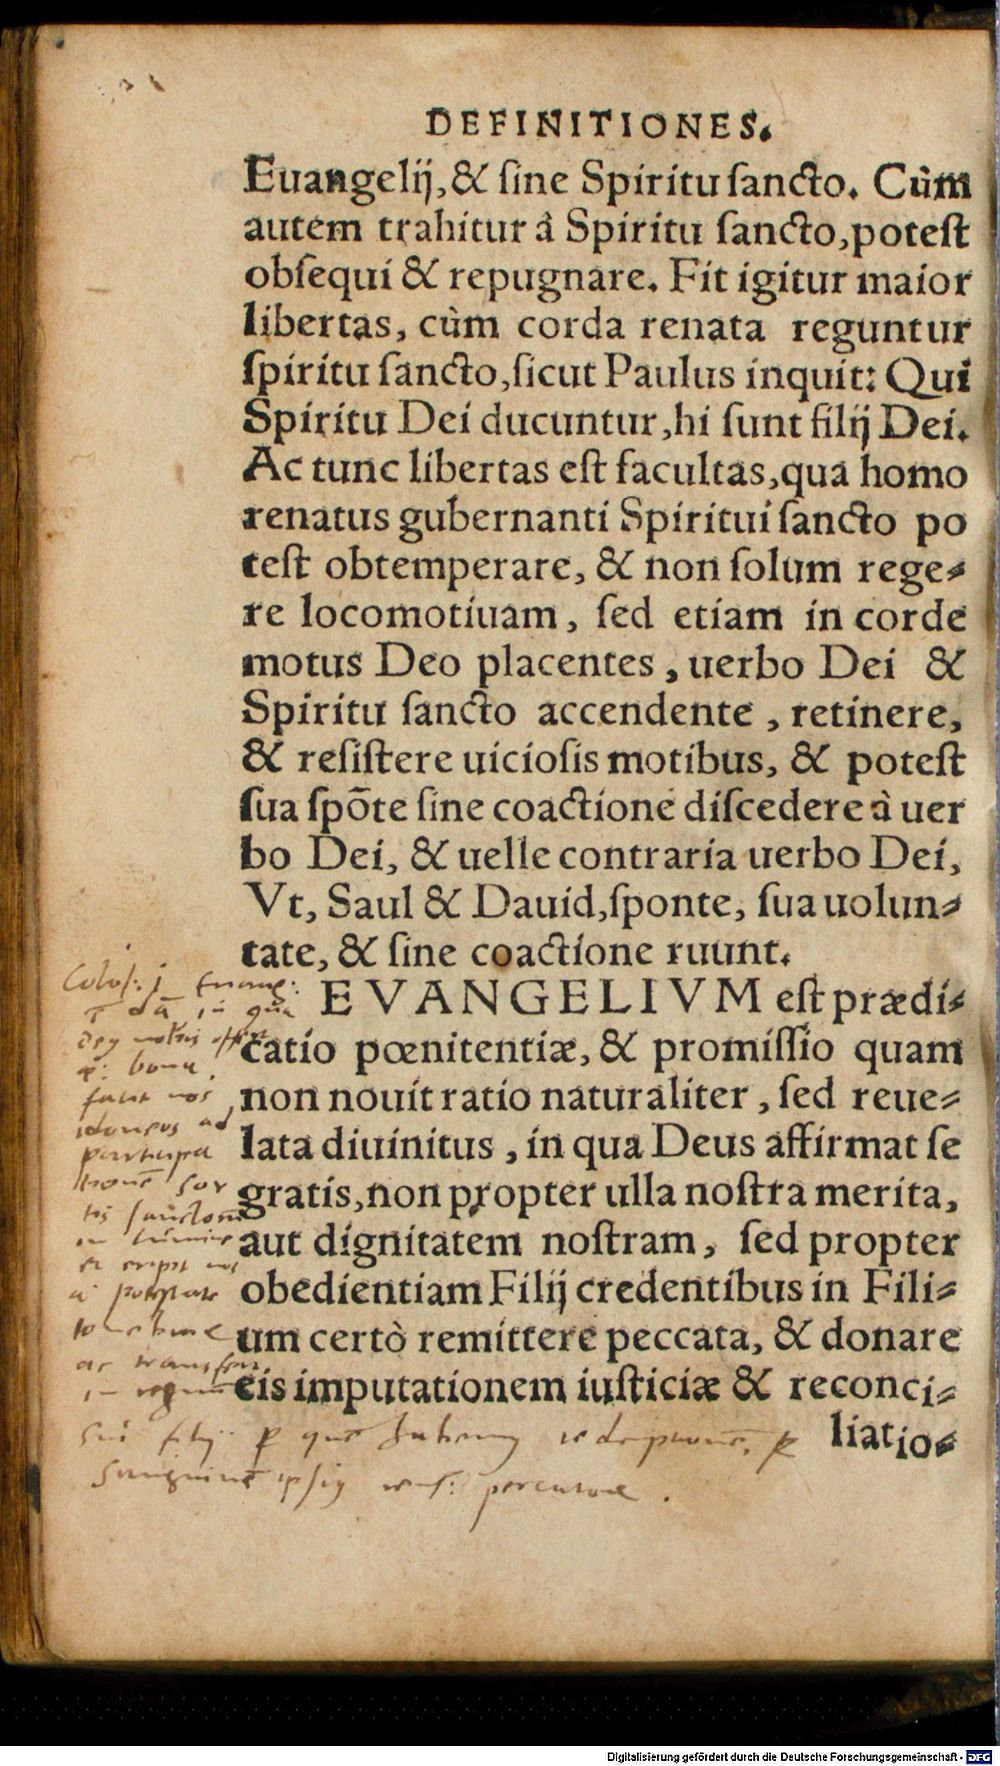 DEFINITIONES.
Euangelij, & ſine Spiritu ſancto. Cùm
autem trahitur à Spiritu ſancto, poteſt
obſequi & repugnare. Fit igitur maior
libertas, cùm corda renata reguntur
ſpiritu ſancto, ſicut Paulus inquit: Qui
Spiritu Dei ducuntur, hi ſunt filij Dei.
Ac tunc libertas eſt facultas, qua homo
renatus gubernanti Spiritui ſancto po
teſt obtemperare, & non ſolum rege⸗
re locomotiuam, ſed etiam in corde
motus Deo placentes, uerbo Dei &
Spiritu ſancto accendente, retinere,
& reſiſtere uicioſis motibus, & poteſt
ſua ſpõte ſine coactione diſcedere à uer
bo Dei, & uelle contraria uerbo Dei,
Vt, Saul & Dauid, ſponte, ſua uolun⸗
tate, & ſine coactione ruunt.
EVANGELIVM eſt prædi⸗
catio pœnitentiæ, & promiſſio quam
non nouit ratio naturaliter, ſed reue⸗
lata diuinitus, in qua Deus affirmat ſe
gratis, non propter ulla noſtra merita,
aut dignitatem noſtram, ſed propter
obedientiam Filij credentibus in Fili⸗
um certò remittere peccata, & donare
eis imputationem iuſticiæ & reconci⸗
liatio⸗
Coloſ: j
bona
facit nos
idoneos ad
participa
tionē ſor
tis ſanctoꝝ
in lumine
et eripit nos
a poteſtate
tenebraꝝ
ac tranſfert
in regnum
ſui filij per quē habemus redemptionē, per
ſanguinē ipſius
Digitalisierung gefördert durch die Deutsche Forschungsgemeinschaft - DFG